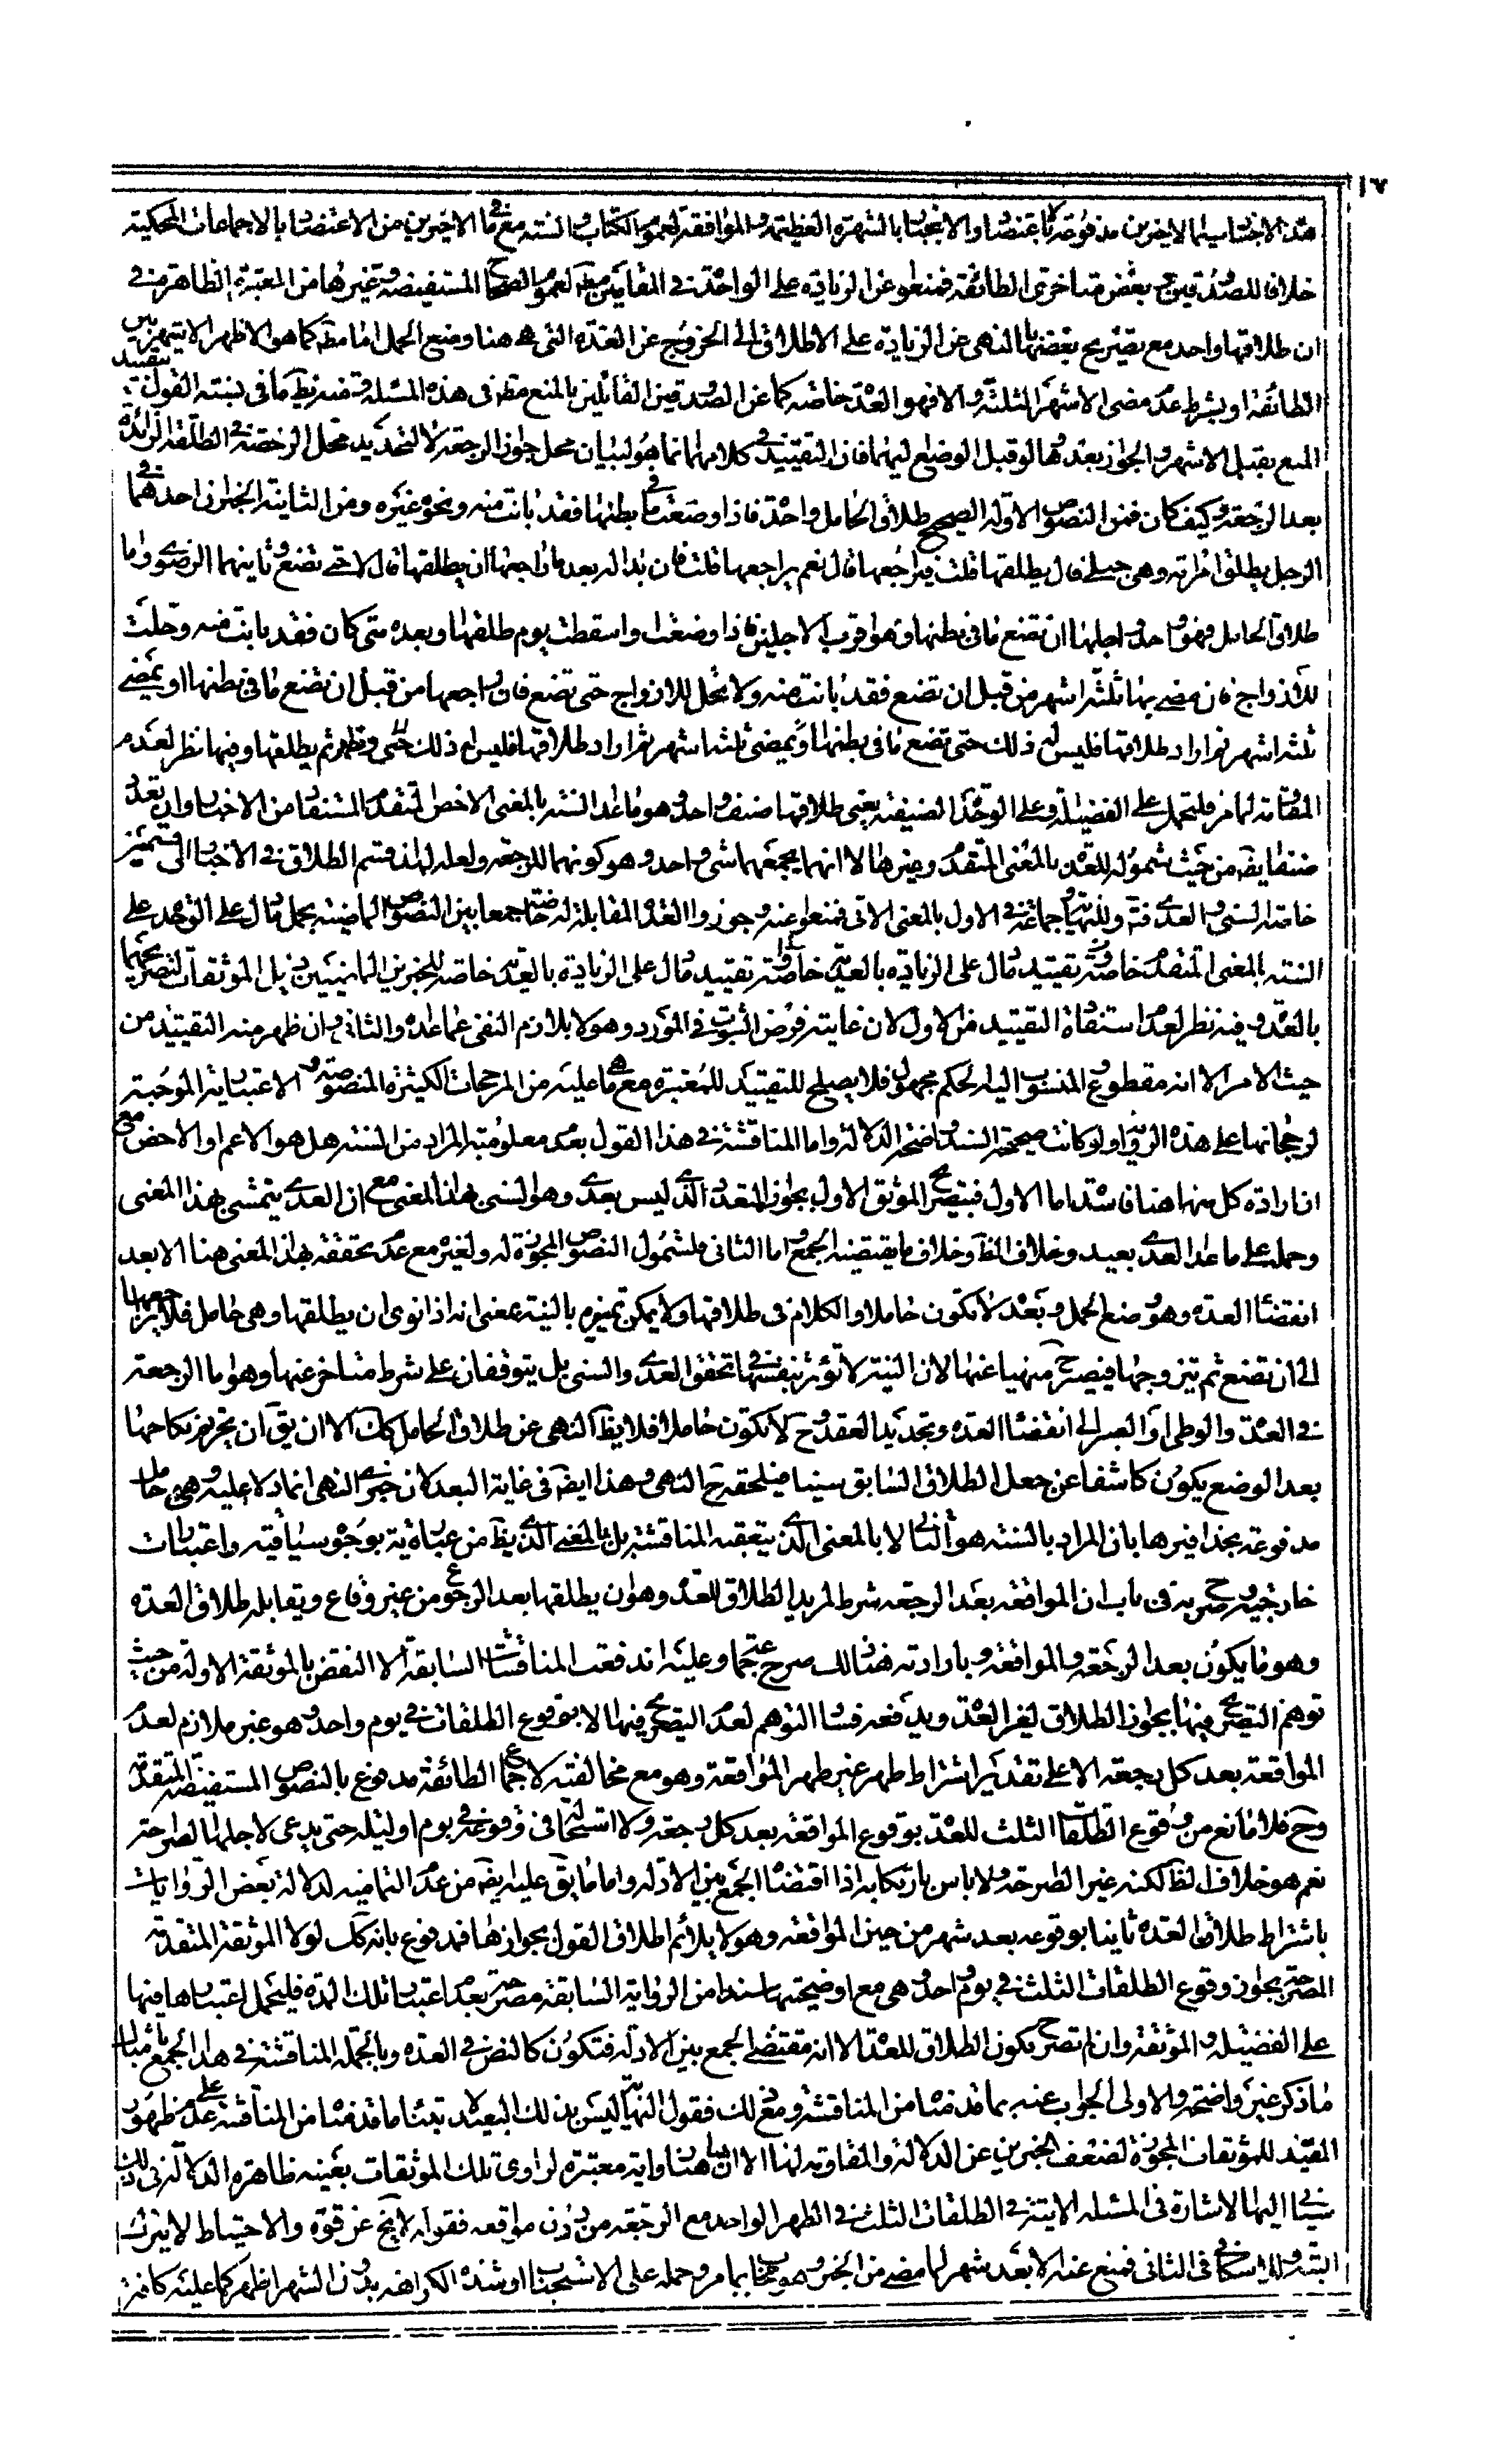 ١٧
خلافا للصدوقين وبعض متأخري الطائفة فمنعوا عن الزيادة على الواحدة في المقامين لعموم الصحاح المستفيضة وغيرها من المعتبرة الظاهرة في
ان طلاقها واحد مع تصريح بعضها بالنهي عن الزيادة على الاطلاق الى الخروج عن العدة التي هي هنا وضع الحمل اما مطلقا كما هو الاظهر الاشهر بين
الطائفة او بشرط عدم مضي الاشهر الثلثة والا فهو العدة خاصة كما عن الصدوقين القائلين بالمنع مطلقا في هذه المسئلة
المنع بقبل الاشهر والجواز بعدها لو قبل الوضع اليهما فان التقييد في كلامهما انما هو لبيان محل جواز الرجعة لا لتحديد محل الرخصة في الطلقة الزائدة
بعد الرجعة وكيف كان فمن النصوص الاولة الصحيح طلاق الحامل واحدة فاذا وضعت ما في بطنها فقد بانت منه ونحوه غيره ومن الثانية الخبران في احدهما
الرجل يطلق امرأته وهي حبلى قال يطلقها قلت فيراجعها قال نعم يراجعها قلت فان بدا له بعد ما راجعها ان يطلقها قال لا حتى تضع وثانيهما الرضوي واما
طلاق الحامل فهو واحد واجلها ان تضع ما في بطنها وهو اقرب الاجلين فاذا وضعت او اسقطت يوم طلقها او بعده متى كان فقد بانت منه وحلت
للازواج فان مضى بها ثلثة اشهر من قبل ان تضع فقد بانت منه ولا تحل للازواج حتى تضع فان راجعها من قبل ان تضع ما في بطنها او يمضي
ثلثة اشهر ثم اراد طلاقها فليس له ذلك حتى تضع ما في بطنها او يمضي ثلثة اشهر ثم اراد طلاقها فليس له ذلك حتى وتطهر ثم يطلقها وفيها نظر لعدم
المقاومة لما مر فلتحمل على الفضيلة وعلى الوحدة الصنفية يعني طلاقها صنف واحد وهو ما عدا السنة بالمعنى الاخص المتقدم المستفاد من الاخبار وان تعدد
صنفا ايضا من حيث شموله للعدي بالمعنى المتقدم وغيرها لا انهما يجمعهما شيء واحد وهو كونهما للرجعة ولعله لهذا قسم الطلاق في الاخبار الى قسمين
خاصة السني والعدي وللنهاية وجماعة في الاول بالمعنى الاتي فمنعوا عنه وجوزوا العدة المقابلة له خاصة جمعا بين النصوص الماضية بحمل ما دل على الوحدة على
السنة بالمعنى المتقدم خاصة وتقييد ما دل على الزيادة بالعدية خاصة للخبرين الماضيين بل الموثقات لتصريحهما
بالعدة وفيه نظر لعدم استفادة التقييد من الاول لان غايته فرض الثبوت في المورد وهو لا يلازم النفي عما عداه والثاني وان ظهر منه التقييد من
حيث الامر الا انه مقطوع المنسوب اليه الحكم مجهول فلا يصلح للتقييد للمعتبرة مع ما هي عليه من المرجحات الكثيرة المنصوصة والاعتبارية الموجبة
لرجحانها على هذه الرواية ولو كانت صحيحة السند واضحة الدلالة واما المناقشة في هذا القول بعدم معلومية المراد من السنة هل هو الاعم او الاخص مع
ان ارادة كل منهما هنا فاسدة اما الاول فبتصريح الموثق الاول بجواز المتعدد الذي ليس بعدي وهو السني بهذا المعنى مع ان العدي يتمشى بهذا المعنى
وحمله على ما عدا العدي بعيد وخلاف الظ وخلاف ما يقتضيه الجمع واما الثاني فلشمول النصوص المجوزة له ولغيره مع عدم تحققه بهذا المعنى هنا الا بعد
انقضاء العدة وهو وضع الحمل وبعده لا تكون حاملا والكلام في طلاقها ولا يمكن تميزه بالنية بمعنى انه اذا نوى ان يطلقها وهي حامل فلا يراجعها
الى ان تضع ثم يتزوجها فيصير ح منهيا عنها لان النية لا تؤثر بنفسها في تحقق العدي والسني بل يتوقفان على شرط متأخر عنها وهو اما الرجعة
في العدة والوطي او الصبر الى انقضاء العدة وتجديد العقد وح لا تكون حاملا فلا يظ النهي عن طلاق الحامل كك الا ان يق ان تحريم نكاحها
بعد الوضع يكون كاشفا عن جعل الطلاق السابق سنيا فيلحقه ح النهي وهذا ايض في غاية البعد لان خبري النهي انما دلا عليه وهي حامل
مدفوعة بحذافيرها بان المراد بالسنة هو الثاني لا بالمعنى الذي يتعقبه المناقشة بل بالمعنى الذي يظ من عبارته بوجوه سياقية واعتبارات
خارجية وصرح به في باب ان المواقعة بعد الرجعة شرط لمريد الطلاق للعدة وهو ان يطلقها بعد الرجوع من غير وقاع ويقابله طلاق العدة
وهو ما يكون بعد الرجعة والمواقعة وبارادته هنا لك صرح جماعة وعليه اندفعت المناقشات السابقة الا النقض بالموثقة الاولة من حيث
توهم التصريح فيها بجواز الطلاق لغير العدة ويدفعه فساد التوهم لعدم التصريح فيها الا بوقوع الطلقات في يوم واحد وهو غير ملازم لعدم
المواقعة بعد كل رجعة الا على تقدير اشتراط طهر غير طهر المواقعة وهو مع مخالفته لاجماع الطائفة مدفوع بالنصوص المستفيضة المتقدمة
وح فلا مانع من وقوع الطلقات الثلث للعدة بوقوع المواقعة بعد كل رجعة ولا استحالة في وقوعه في يوم او ليلة حتى يدعى لاجلها الصراحة
نعم هو خلاف الظ لكنه غير الصراحة ولا باس بارتكابه اذا اقتضاه الجمع بين الادلة واما ما يق عليه ايض من عدم التمامية لدلالة بعض الروايات
باشتراط طلاق العدة ثانيا بوقوعه بعد شهر من حين المواقعة وهو لا يلائم اطلاق القول بجوازها فمدفوع بانه كك لولا الموثقة المتقدمة
المصرحة بجواز وقوع الطلقات الثلث في يوم واحد وهي مع اوضحيتها سندا من الرواية السابقة مصرحة بعدم اعتبار تلك المدة فليحمل اعتبارها فيها
على الفضيلة والموثقة وان لم تصرح بكون الطلاق للعدة الا انه مقتضى الجمع بين الادلة فتكون كالنص في العدة وبالجملة المناقشة في هذا الجمع بامثال
ما ذكر غير واضحة والاولى الجواب عنه بما قدمنا من المناقشة ومع ذلك فقول النهاية ليس بذلك البعيد
المقيد للموثقات المجوزة لضعف الخبرين عن الدلالة والمقاومة لها الا ان هنا رواية معتبرة لراوي تلك الموثقات بعينه ظاهرة الدلالة في ذلك
سيأتي اليها الاشارة في المسئلة الاتية في الطلقات الثلث في الطهر الواحد مع الرجعة من دون مواقعة فقوله لا يخ عن قوة والاحتياط لا يترك
البتة وللاسكافي في الثاني فمنع عنه الا بعد شهر لما مضى من الخبر وهو مجاب بما مر وحمله على الاستحباب او شدة الكراهة بدون الشهر اظهر كما عليه كافة